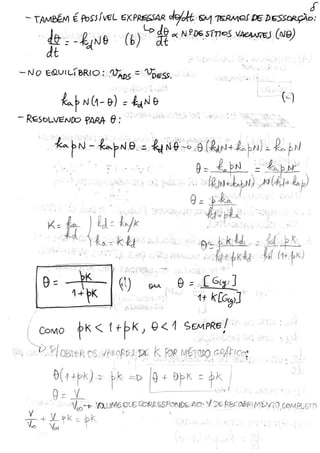 8
- TAMBÉM É POSSÍVEL EXPRESSAR dθ/dt EM TERMOS DE DESSORÇÃO:
dθ/dt = - kdNθ (b) ↳ dθ/dt ∝ Nº DE SÍTIOS VACANTES (Nθ)
- NO EQUILÍBRIO: VADS = VDESS.
kapN(1-θ) = kdNθ (c)
- RESOLVENDO PARA θ:
kapN - kapNθ = kdNθ → θ(kdN+kapN) = kapN
θ = kapN / (kdN+kapN) = kapN / N(kd+kap)
θ = pka / kd+pka
K = ka/kd } kd = ka/K
ka = Kkd
θ = pKkd / kd+pKkd = kd.pK / kd(1+pK)
θ = pK / 1+pK (i) ou θ = [G(g)] / 1+K[G(g)]
COMO pK < 1+pK, θ < 1 SEMPRE!
P/ OBTER OS VALORES DE K POR MÉTODO GRÁFICO:
θ(1+pK) = pK => θ + θpK = pK
θ = V / V∞ → VOLUME QUE CORRESPONDE AO V DE RECOBRIMENTO COMPLETO
V/V∞ + V/V∞ pK = pK